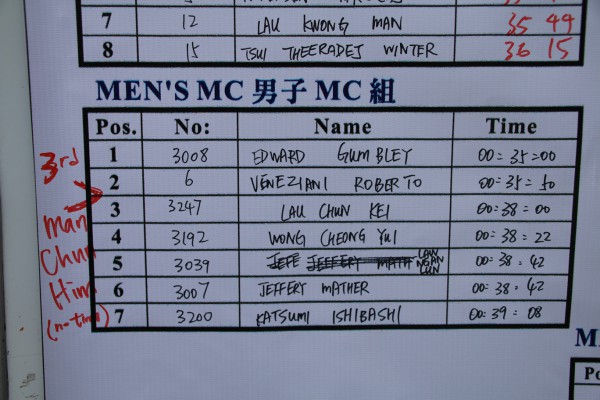 7 12 LAU KWONG MAN 35 49
8 15 TSUI THEERADEJ WINTER 36 15
MEN'S MC 男子 MC 組
Pos. No: Name Time
1 3008 EDWARD GUMBLEY 00:35:00
2 6 VENEZIANI ROBERTO 00:35:50
3 3247 LAU CHUN KEI 00:38:00
4 3192 WONG CHEONG YUI 00:38:22
5 3039 LAW NGAN LUN 00:38:42
6 3007 JEFFERY MATHER 00:38:42
7 3200 KATSUMI ISHIBASHI 00:39:08
3rd
Man
Chun
Him
(no time)
M
Po